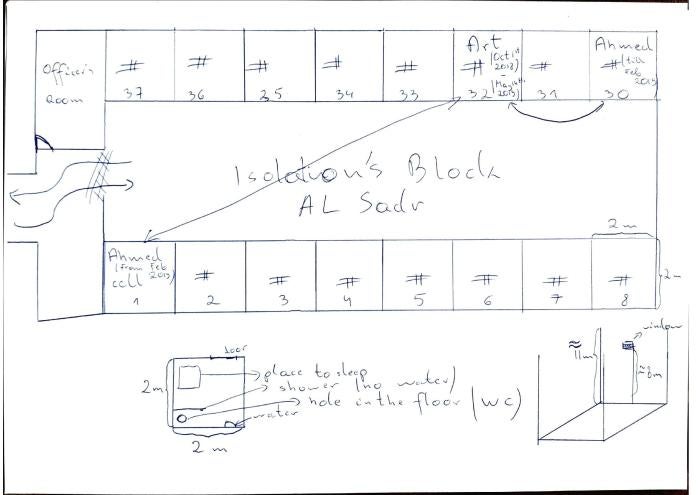 Officer's
Room
#
37
#
36
#
35
#
34
#
33
Art
# (Oct 1st
2018)
-
32 (May 4th
2019)
#
31
Ahmed
# (till
Feb
2019)
30
Isolation's Block
AL Sadr
Ahmed
(from Feb
2019)
cell
1
#
2
#
3
#
4
#
5
#
6
#
7
#
8
2 m
2 m
door
2 m
place to sleep
shower (no water)
hole in the floor (WC)
water
2 m
≈
11m
window
≈8m